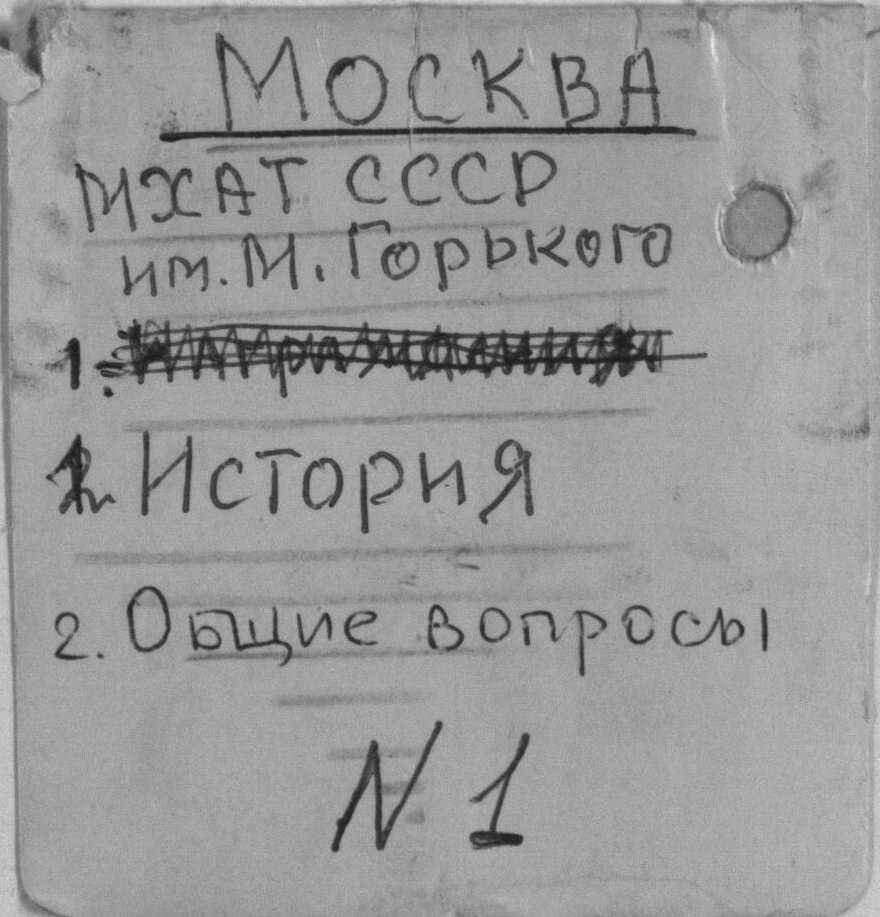 МОСКВА
МХАТ СССР
им. М. Горького
1.
1. История
2. Общие вопросы
N 1